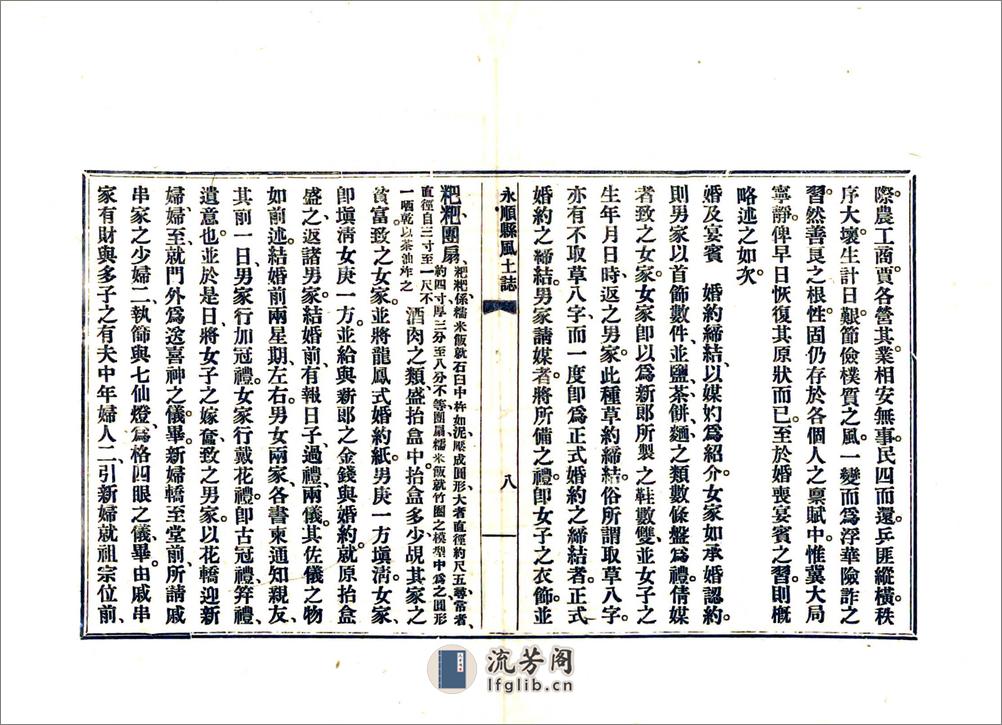 際、農工商賈各營其業、相安無事。民四而還、兵匪縱橫。秩
序大壞、生計日艱。節儉樸質之風、一變而爲浮華險詐之
習。然善良之根性、固仍存於各個人之稟賦中。惟冀大局
寧靜、俾早日恢復其原狀而已。至於婚喪宴賓之習、則概
略述之如次。
婚及宴賓　婚約締結、以媒妁爲紹介、女家如承婚認約、
則男家以首飾數件、並鹽茶餅、麵之類數條盤爲禮。倩媒
者致之女家。女家即以爲新郎所製之鞋數雙、並女子之
生年月日時、返之男家。此種草約締結、俗所謂取草八字。
亦有不取草八字、而一度即爲正式婚約之締結者。正式
婚約之締結。男家請媒者將所備之禮、即女子之衣飾、並
永順縣風土誌
八
粑粑、團扇、粑粑係糯米飯就石臼中杵如泥、壓成圓形、大者直徑約尺五、尋常者、
直徑自三寸至一尺不
約四寸、厚三分至八分不等、團扇、糯米飯就竹圈之模型中爲之圓形
一晒乾以茶油炸之
酒肉之類、盛抬盒中、抬盒多少、視其家之
貧富、致之女家。並將龍鳳式婚約紙、男庚一方塡淸、女家
即塡淸女庚一方。並給與新郎之金錢與婚約、就原抬盒
盛之、返諸男家。結婚前、有報日子、過禮、兩儀。其佐儀之物
如前述。結婚前兩星期左右、男女兩家、各書柬通知親友、
其前一日、男家行加冠禮。女家行戴花禮。即古冠禮、笄禮、
遺意也。並於是日將女子之嫁奩、致之男家。以花轎迎新
婦、婦至、就門外爲送喜神之儀。畢、新婦轎至堂前、所請戚
串家之少婦二、執篩與七仙燈、爲格四眼之儀、畢、由戚串
家有財與多子之有夫中年婦人二、引新婦就祖宗位前、
流芳阁
lfglib.cn